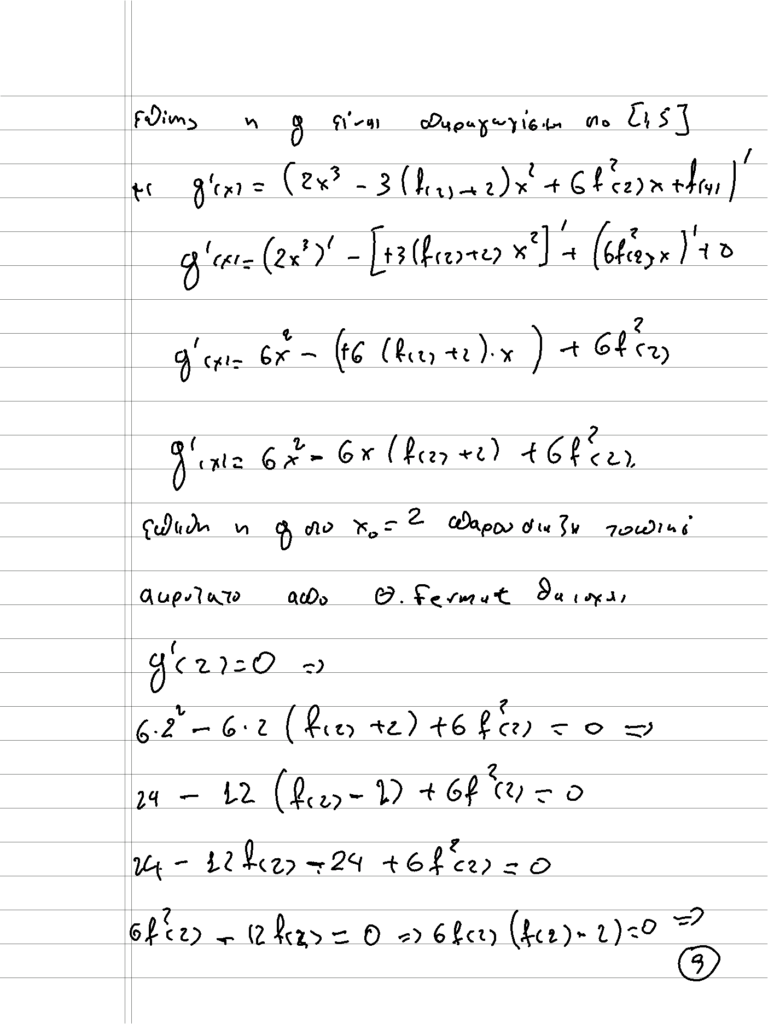 Επίσης η g είναι παραγωγίσιμη στο [1,5]
με g'(x) = (2x³ - 3(f(2)+2)x² + 6f²(2)x + f(4))'
g'(x) = (2x³)' - [+3(f(2)+2)x²]' + (6f²(2)x)' + 0
g'(x) = 6x² - (+6(f(2)+2)·x) + 6f²(2)
g'(x) = 6x² - 6x(f(2)+2) + 6f²(2).
Επειδή η g στο x₀ = 2 παρουσιάζει τοπικό
ακρότατο από Θ. Fermat θα ισχύει
g'(2) = 0 ⇒
6·2² - 6·2(f(2)+2) + 6f²(2) = 0 ⇒
24 - 12(f(2) - 2) + 6f²(2) = 0
24 - 12f(2) - 24 + 6f²(2) = 0
6f²(2) - 12f(2) = 0 ⇒ 6f(2)(f(2) - 2) = 0 ⇒
9